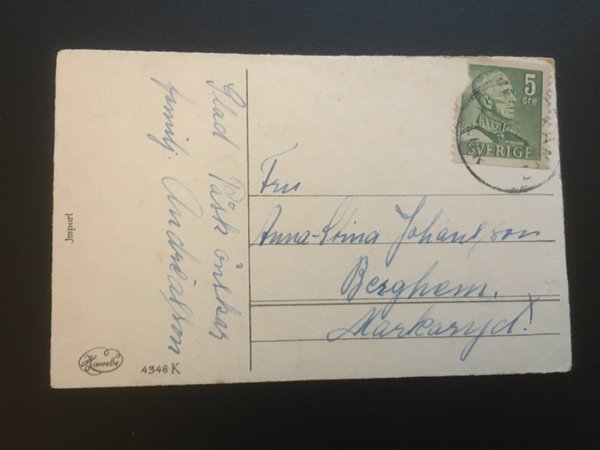 Glad Påsk önskar
familj. Andreasson
5
öre
SVERIGE
Fru
Anna-Stina Johansson
Berghem.
Markaryd!
Import
4346 K